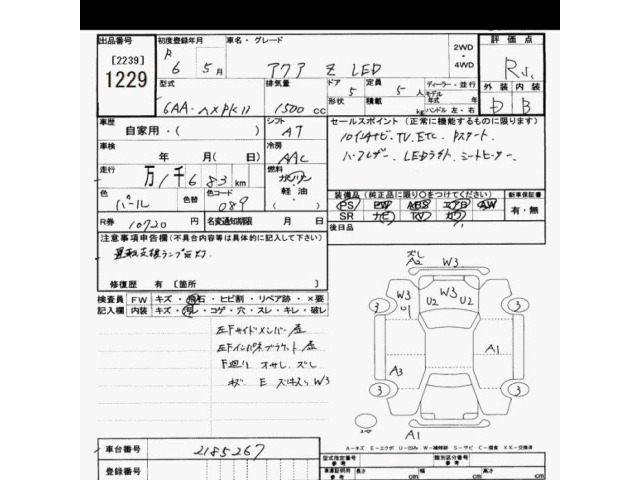 出品番号
[2239]
1229
初度登録年月
R 6 年 5 月
車名・グレード
アクア Z LED
2WD
・
4WD
評価点
R
型式
6AA-MXPK11
排気量
1500 cc
ドア
5
定員
5 人
ディーラー・並行
モデル
年式 年
形状
積載
kg
ハンドル 左・右
外装
内装
D
B
車歴
自家用・( )
シフト
AT
セールスポイント (正常に機能するものに限ります)
10インチナビ・TV、ETC、Pスタート
LEDライト、シートヒーター
車検
年 月( 日)
冷房
AAC
走行
万 1千 683 km
燃料
ガソリン
軽油・
( )
色
パール
色替
色コード
089
装備品 (純正品に限り○をつけてください)
新車保証書
PS
PW
ABS
エアB
AW
有・無
SR
ナビ
TV
カワ
R券
10720 円
名変通知期限 月 日
後日品
注意事項申告欄 (不具合内容等は具体的に記入して下さい)
運転支援ランプ点灯
修復歴 有 [箇所 ]
検査員
記入欄
FW
キズ・飛石・ヒビ割・リペア跡・×要
内装
キズ・汚レ・コゲ・穴・スレ・キレ・破レ
左Fサイドメンバー歪
左Fインパネブラケット歪
F廻り オサレ、ズレ
キズ E ズキズレ W3
ズレ
A2
W3
W3
U1
W3
U2
U2
3
3
A3
A1
3
3
A1
A-キズ E-エクボ U-凹み W-補修跡 S-サビ C-腐食 XX-交換済
車台番号
2185267
登録番号
型式指定番号
参考
類別区分番号
参考
車庫証明用
参考
長さ
cm
幅
cm
高さ
cm